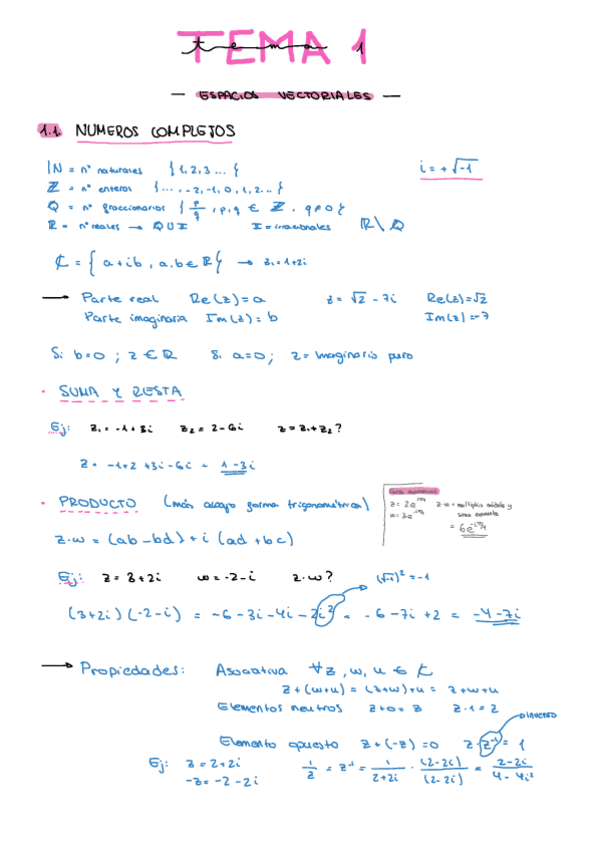 TEMA 1
tema
— ESPACIOS VECTORIALES —
1.1. NUMEROS COMPLEJOS
ℕ = nº naturales { 1, 2, 3 ... {
ℤ = nº enteros { ..., -2, -1, 0, 1, 2... }
ℚ = nº fraccionarios { p/q , p, q ∈ ℤ , q ≠ 0 }
ℝ = nº reales → ℚ ∪ II II = irracionales ℝ \ ℚ
i = + √-1
ℂ = { a + ib , a, b ∈ ℝ } → z₁ = 1 + 2i
→ Parte real Re(z) = a z = √2 - 7i Re(z) = √2
Parte imaginaria Im(z) = b Im(z) = -7
Si b = 0 ; z ∈ ℝ Si a = 0 ; z = Imaginario puro
· SUMA Y RESTA
Ej: z₁ = -1 + 3i z₂ = 2 - 6i z = z₁ + z₂ ?
z = -1 + 2 + 3i - 6i = 1 - 3i
· PRODUCTO (más abajo forma trigonométrica)
z · w = (ab - bd) + i (ad + bc)
z · w = multiplico módulo y
Ej: z = 3 + 2i w = -2 - i z · w ? (√-1)² = -1
(3 + 2i) (-2 - i) = -6 - 3i - 4i - 2i² = -6 - 7i + 2 = -4 - 7i
→ Propiedades: Asociativa ∀ z, w, u ∈ ℂ
z + (w + u) = (z + w) + u = z + w + u
Elementos neutros z + 0 = z z · 1 = z
INVERSO
Elemento opuesto z + (-z) = 0 z · z⁻¹ = 1
Ej: z = 2 + 2i 1/z = z⁻¹ = 1/(2 + 2i) · (2 - 2i)/(2 - 2i) = (2 - 2i)/(4 - 4i²)
-z = -2 - 2i